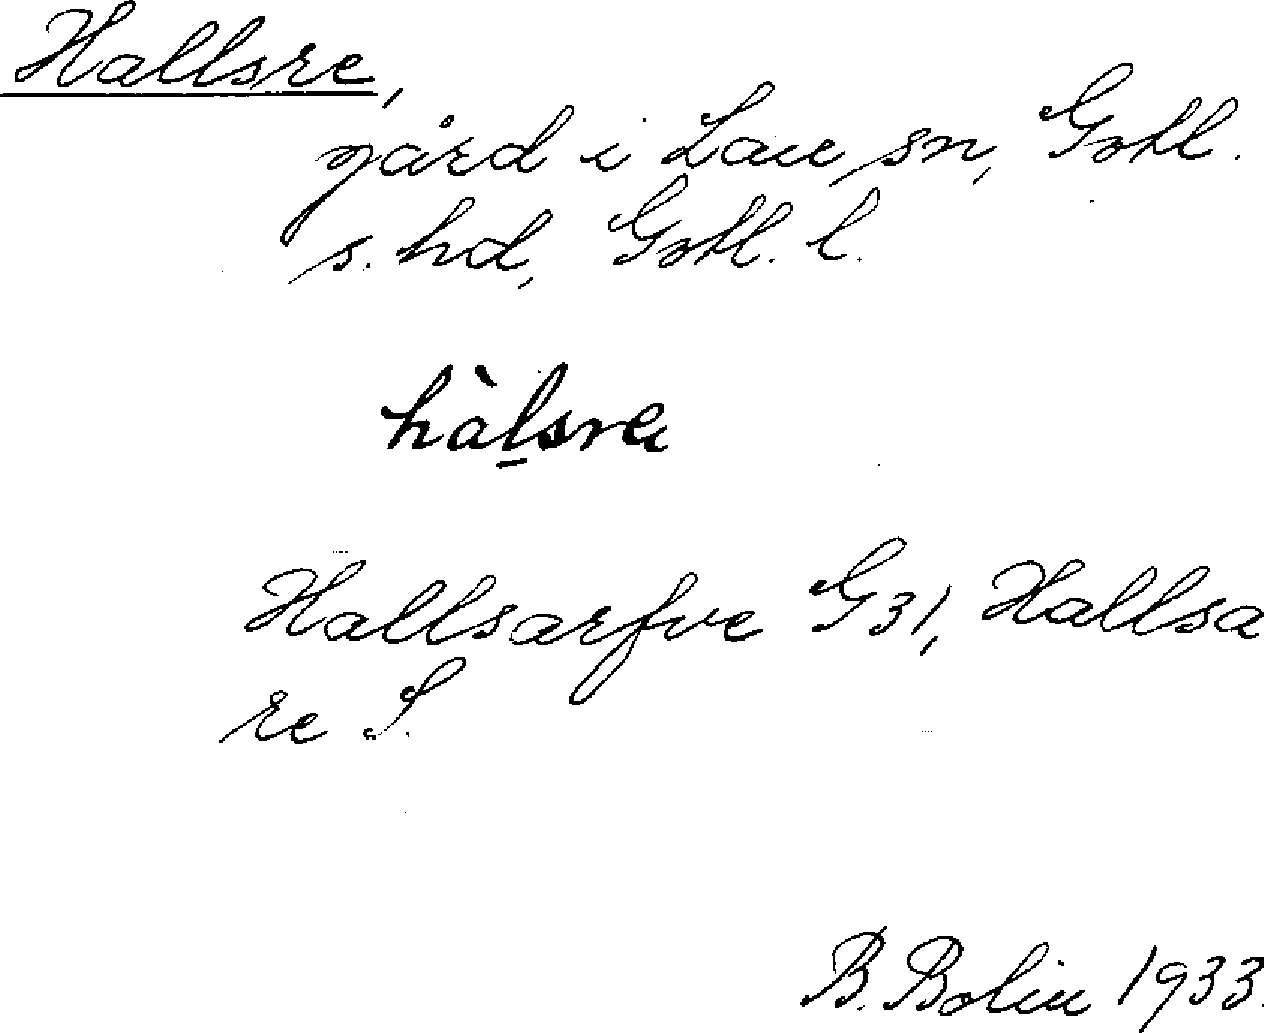 Hallsre,
gård i Lau sn, Gotl.
s. hd, Gotl. l.
hàl̠sre
Hallsarfve G31, Hallsa
re S.
B. Bolin 1933.